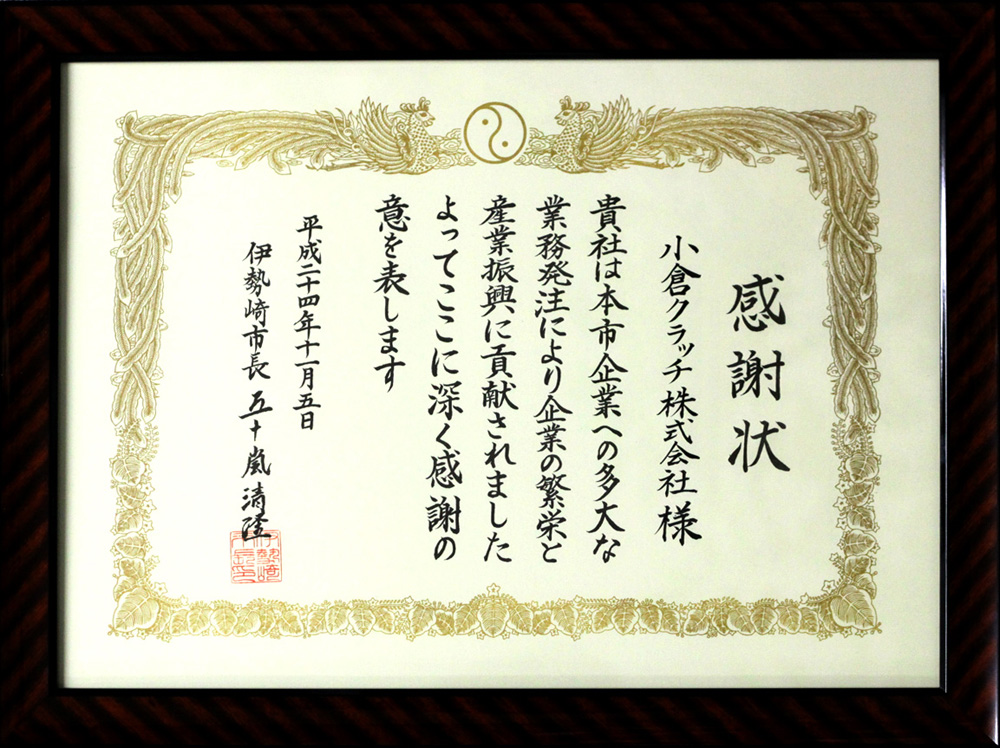 感謝状
小倉クラッチ株式会社様
貴社は本市企業への多大な
業務発注により企業の繁栄と
産業振興に貢献されました
よってここに深く感謝の
意を表します
平成二十四年十一月五日
伊勢崎市長 五十嵐清隆